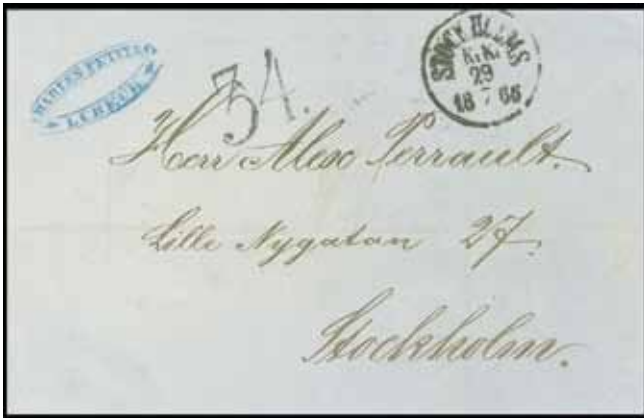 LÜBECK
34.
STOCKHOLMS
K.K.
29
18 7 66
Herr Alex Perrault.
Lille Nygatan 27.
Stockholm.